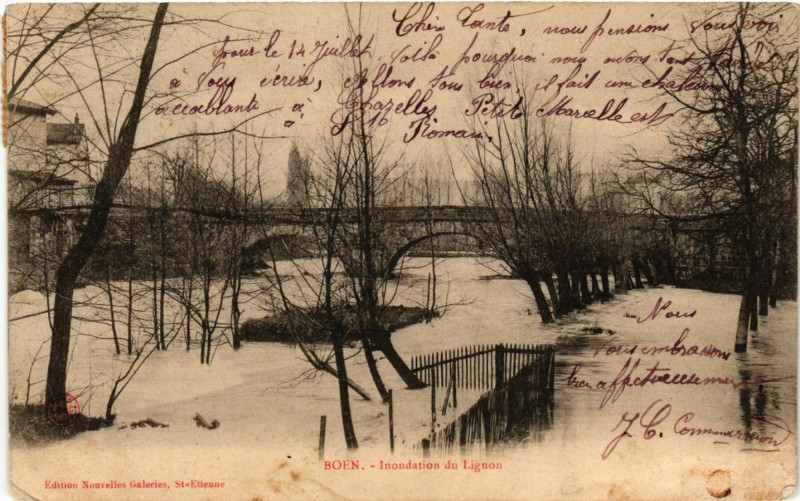 Chère Tante, nous pensions vous voir
pour le 14 Juillet, voilà pourquoi nous avons tant tardé
à vous écrire, allons tous bien, il fait une chaleur
accablante à Chazelles Petit Marcelle est
à St Romain.
Nous
vous embrassons
bien affectueusement
J C.
BOEN. - Inondation du Lignon
Edition Nouvelles Galeries, St-Etienne